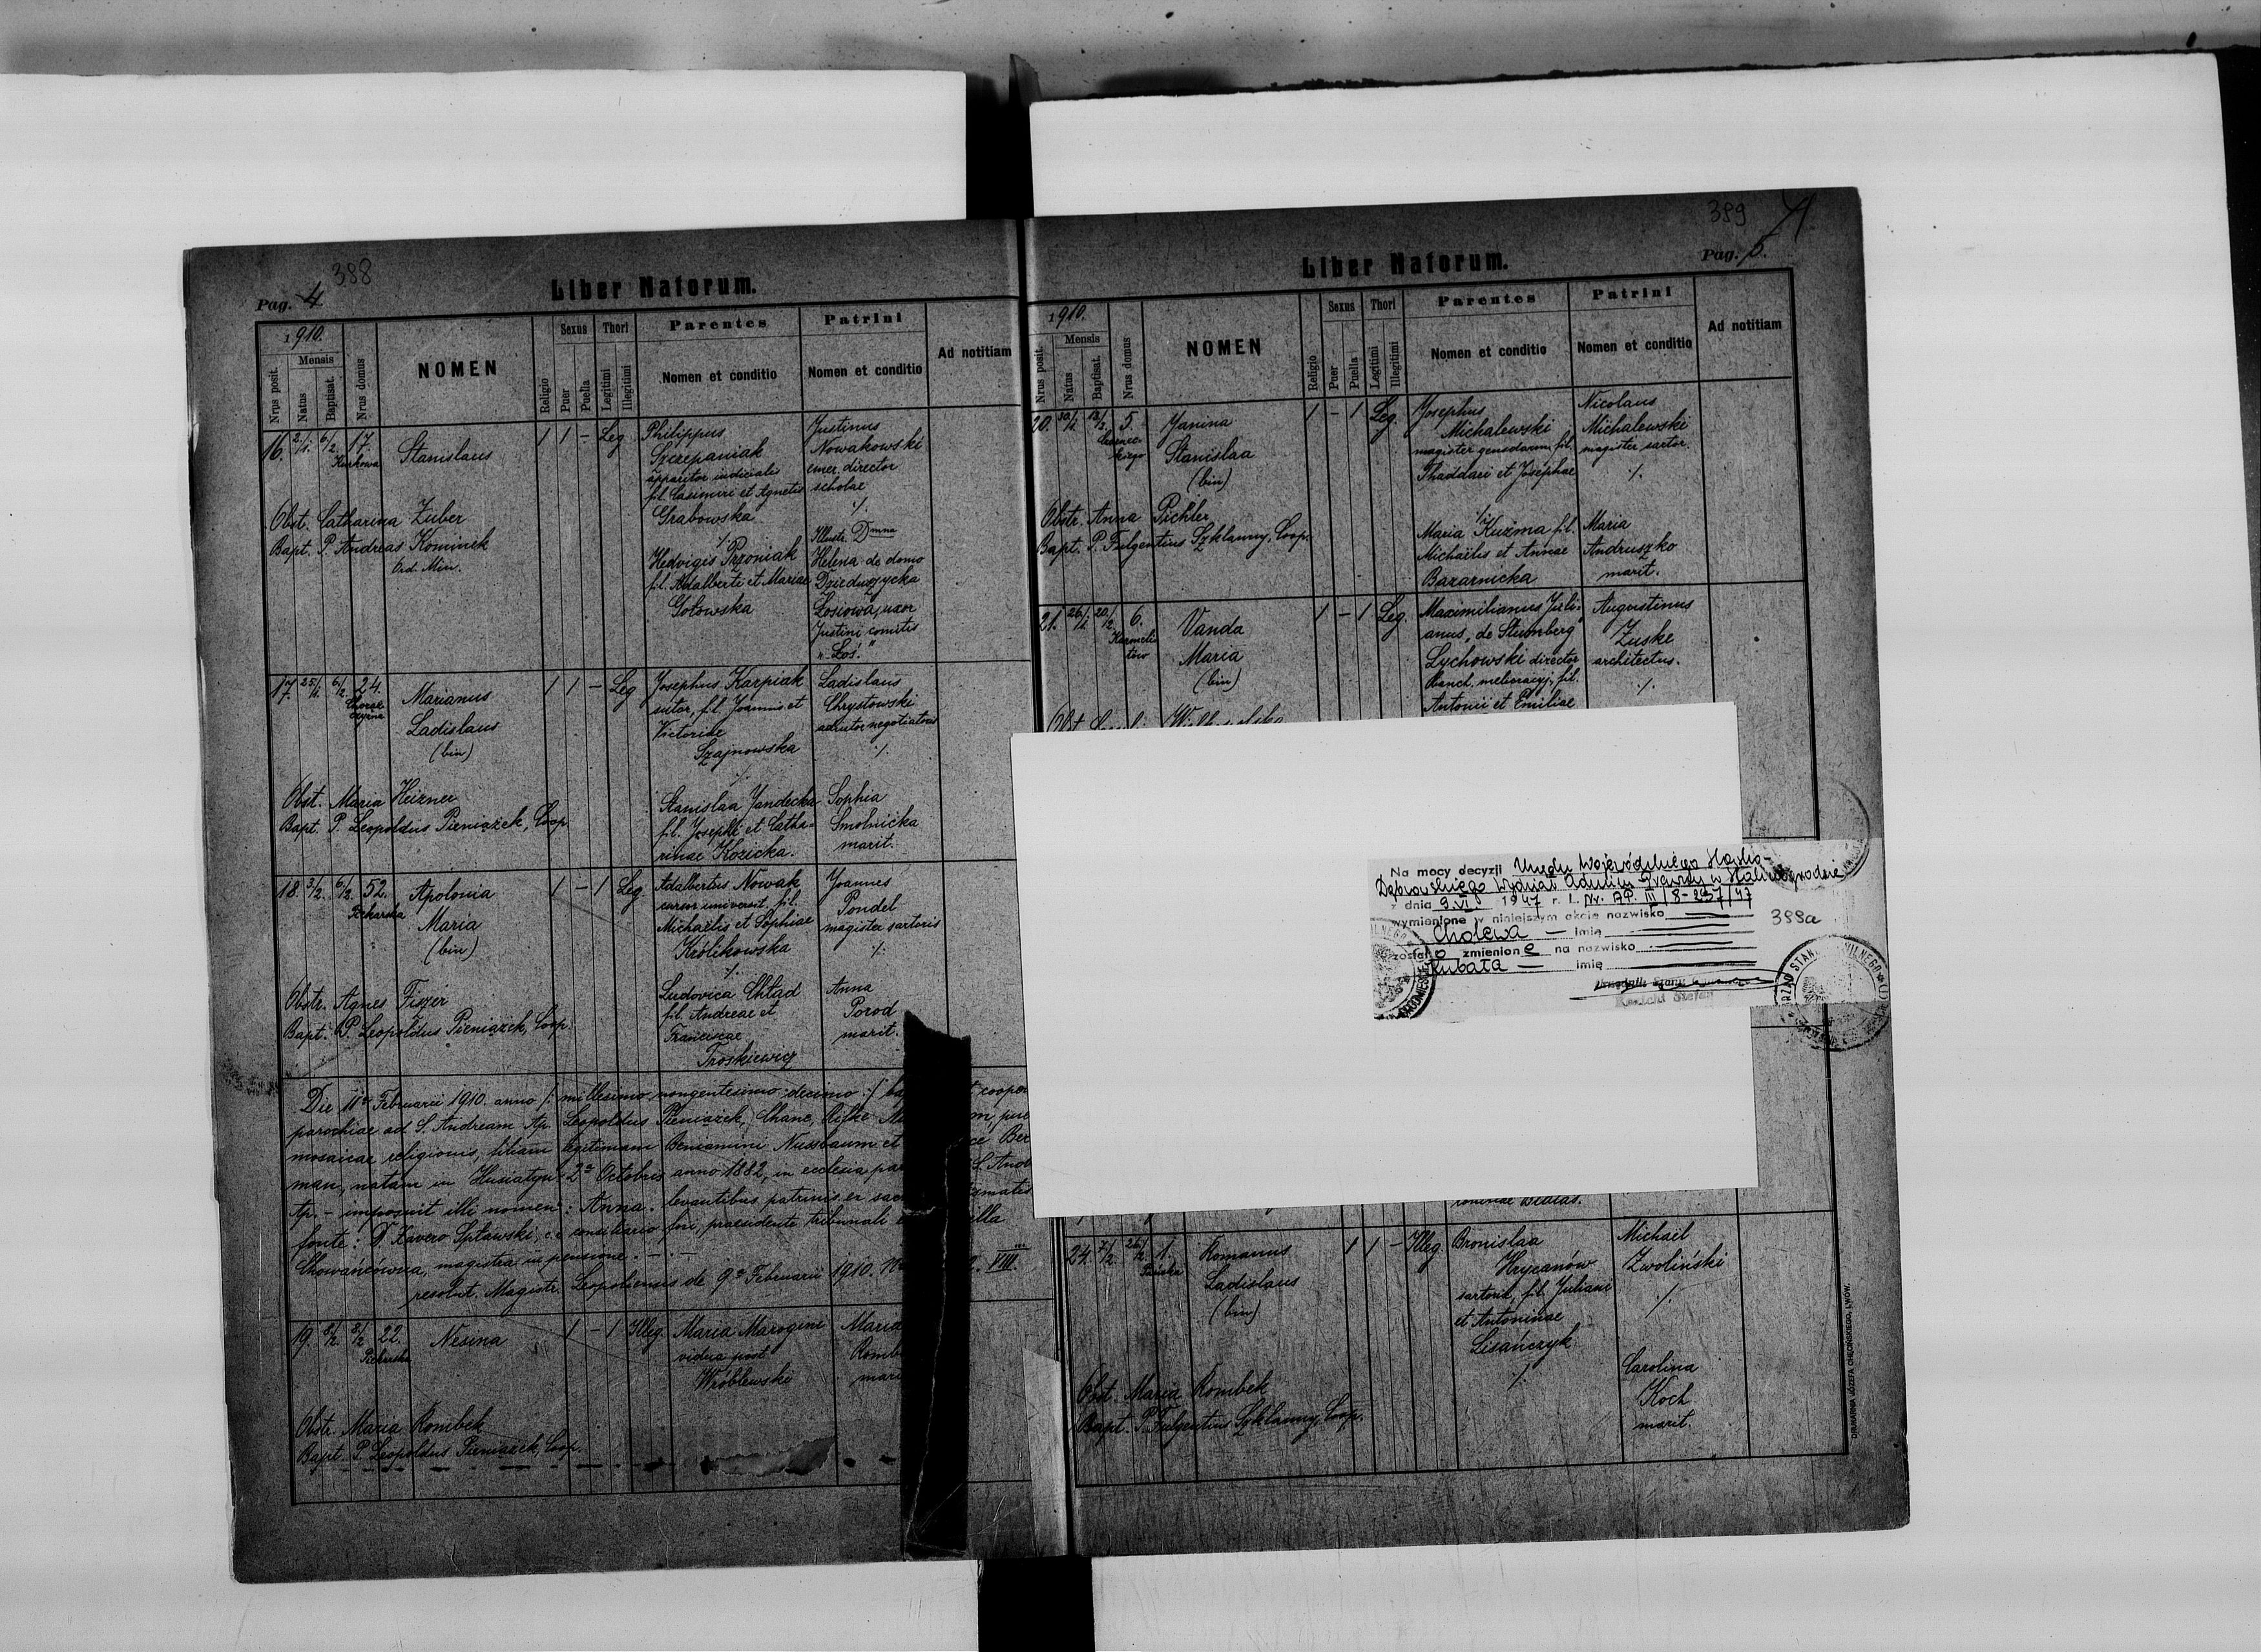 388
Pag. 4
Liber Natorum.
1910.
Mensis
Nrus posit.
Natus
Baptisat.
Nrus domus
NOMEN
Religio
Sexus
Puer
Puella
Thori
Legitimi
Illegitimi
Parentes
Nomen et conditio
Patrini
Nomen et conditio
Ad notitiam
16. 2/1. 6/2 17. Stanislaus 1 1 – Leg. Philippus Justinus
Kurkowa Szczepaniak Nowakowski
apparitor indicialis emer. director
fil. Casimiri et Agnetis scholae
Grabowska ./.
Obst. Catharina Zuber
Bapt. P. Andreas Kominek
Ord. Min.
./. Illustr. Dmna
Hedvigis Przoniak Helena de domo
fil. Adalberti et Mariae Dzieduszycka
Gołowska Łosiowa, uxor
Justini comitis
"Łoś."
17. 25/1. 6/2. 24. Marianus 1 1 – Leg Josephus Karpiak Ladislaus
Ladislaus sutor, fil. Joannis et Chrystowski
(bin) Victoriae adiutor negotiatoris
Szajnowska ./.
./.
Obst. Maria Heizner Stanislaa Jandecka Sophia
Bapt. P. Leopoldus Pieniążek, Coop. fil. Josephi et Catha- Smolnicka
rinae Kozicka. marit.
18. 3/2. 6/2 52. Apolonia 1 – 1 Leg Adalbertus Nowak Joannes
Piekarska Maria cursor universit. fil. Pondel
(bin) Michaëlis et Sophiae magister sartoris
Królikowska ./.
./.
Obstr. Agnes Fiszer Ludovica Chład Anna
Bapt. P. Leopoldus Pieniążek, Coop. fil. Andreae et Porod
Franciscae marit.
Troskiewicz
Die 11a Februarii 1910. anno /: millesimo nongentesimo decimo :/ cooper
parochiae ad S. Andream Ap. Leopoldus Pieniążek, Chane Rifke
mosaicae religionis, filiam legitimam Beniamini Nussbaum et Ber
man, natam in Husiatyn 2a Octobris anno 1882, in ecclesia S. And
Ap. – imposuit illi nomen: Anna. levantibus patrinis ex
fonte: D. Xavero Spławski, c.r. consiliario fori, praesidente tribunali
Chowańcówna, magistra in pensione. –
resolut. Magistr. Leopoliensis de 9a Februarii 1910. VIII
19. 8/2. 8/2 22. Nesina 1 – 1 Illeg. Maria Marogini Maria
Piekarska vidua post
Wróblewski
Obstr. Maria Rombek
Bapt. P. Leopoldus Pieniążek, Coop.
389
Pag. 5.
Liber Natorum.
1910.
Mensis
Nrus posit.
Natus
Baptisat.
Nrus domus
NOMEN
Religio
Sexus
Puer
Puella
Thori
Legitimi
Illegitimi
Parentes
Nomen et conditio
Patrini
Nomen et conditio
Ad notitiam
20. 30/1. 13/2. 5. Janina 1 – 1 Leg. Josephus Nicolaus
Stanislaa Michalewski Michalewski
(bin) magister fil. magister sartor.
Thaddaei et Josephae ./.
./.
Obstr. Anna Pichler Maria Kuźma fil. Maria
Bapt. P. Fulgentius Szklanny, Coop. Michaëlis et Annae Andruszko
Bazarnicka marit.
21. 26/1. 20/2 6. Vanda 1 – 1 Leg. Maximilianus Juli- Augustinus
Karmeli- Maria anus, de Zuske
tów (bin) Lychowski director architectus.
fil. ./.
Antonii et Emiliae
Na mocy decyzji Urzędu Wojewódzkiego Śląsko-
Dąbrowskiego Wydział Admin. Prawny w
z dnia 9.VI. 1947 r. L. Nr. AP. III/8-297/47
wymienione w niniejszym akcie nazwisko
Cholewa – imię
zostało zmienione na nazwisko
Kubata – imię
388a
24. 7/2 26/2 1. Romanus 1 1 – Illeg. Bronislaa Michaël
Ladislaus Hrycanów Zwoliński
(bin) sartorix, fil. Juliani ./.
et Antoninae
Lisańczyk
./. Carolina
Obst. Maria Rombek Koch
Bapt. P. Fulgentius Szklanny, Coop. marit.
DRUKARNIA JÓZEFA CHĘCIŃSKIEGO, LWÓW.